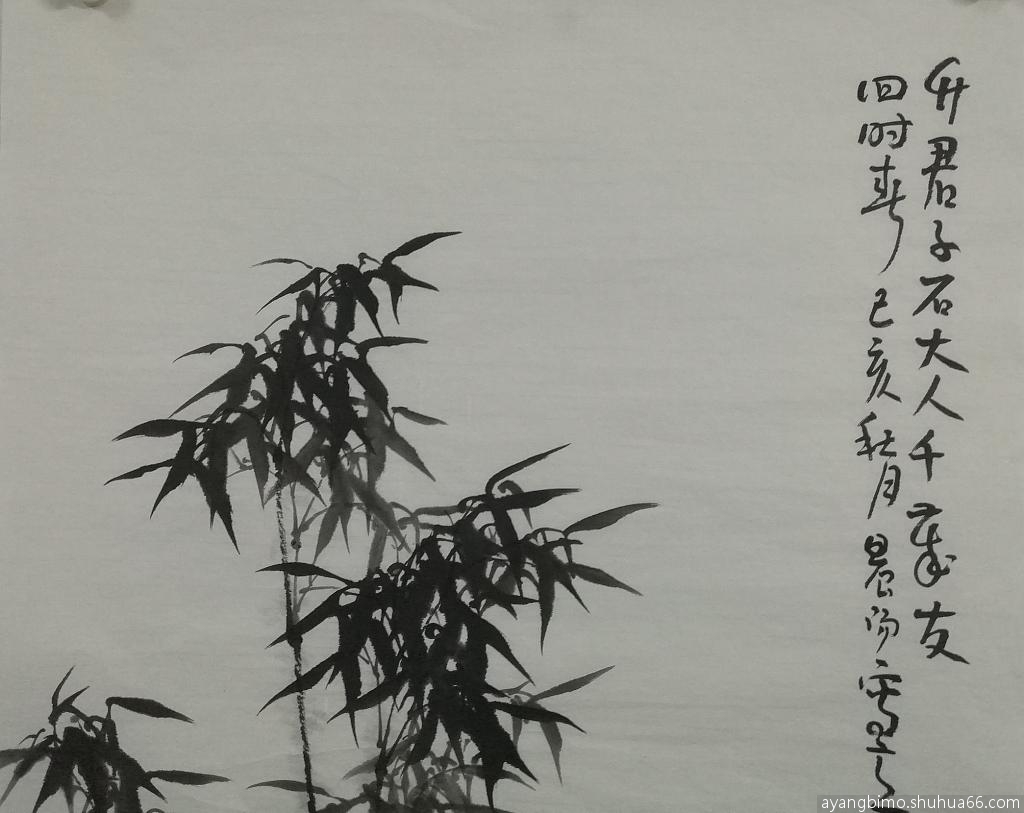 竹君子石大人千歲友
四时春 己亥秋月 晨陽
ayangbimo.shuhua66.com